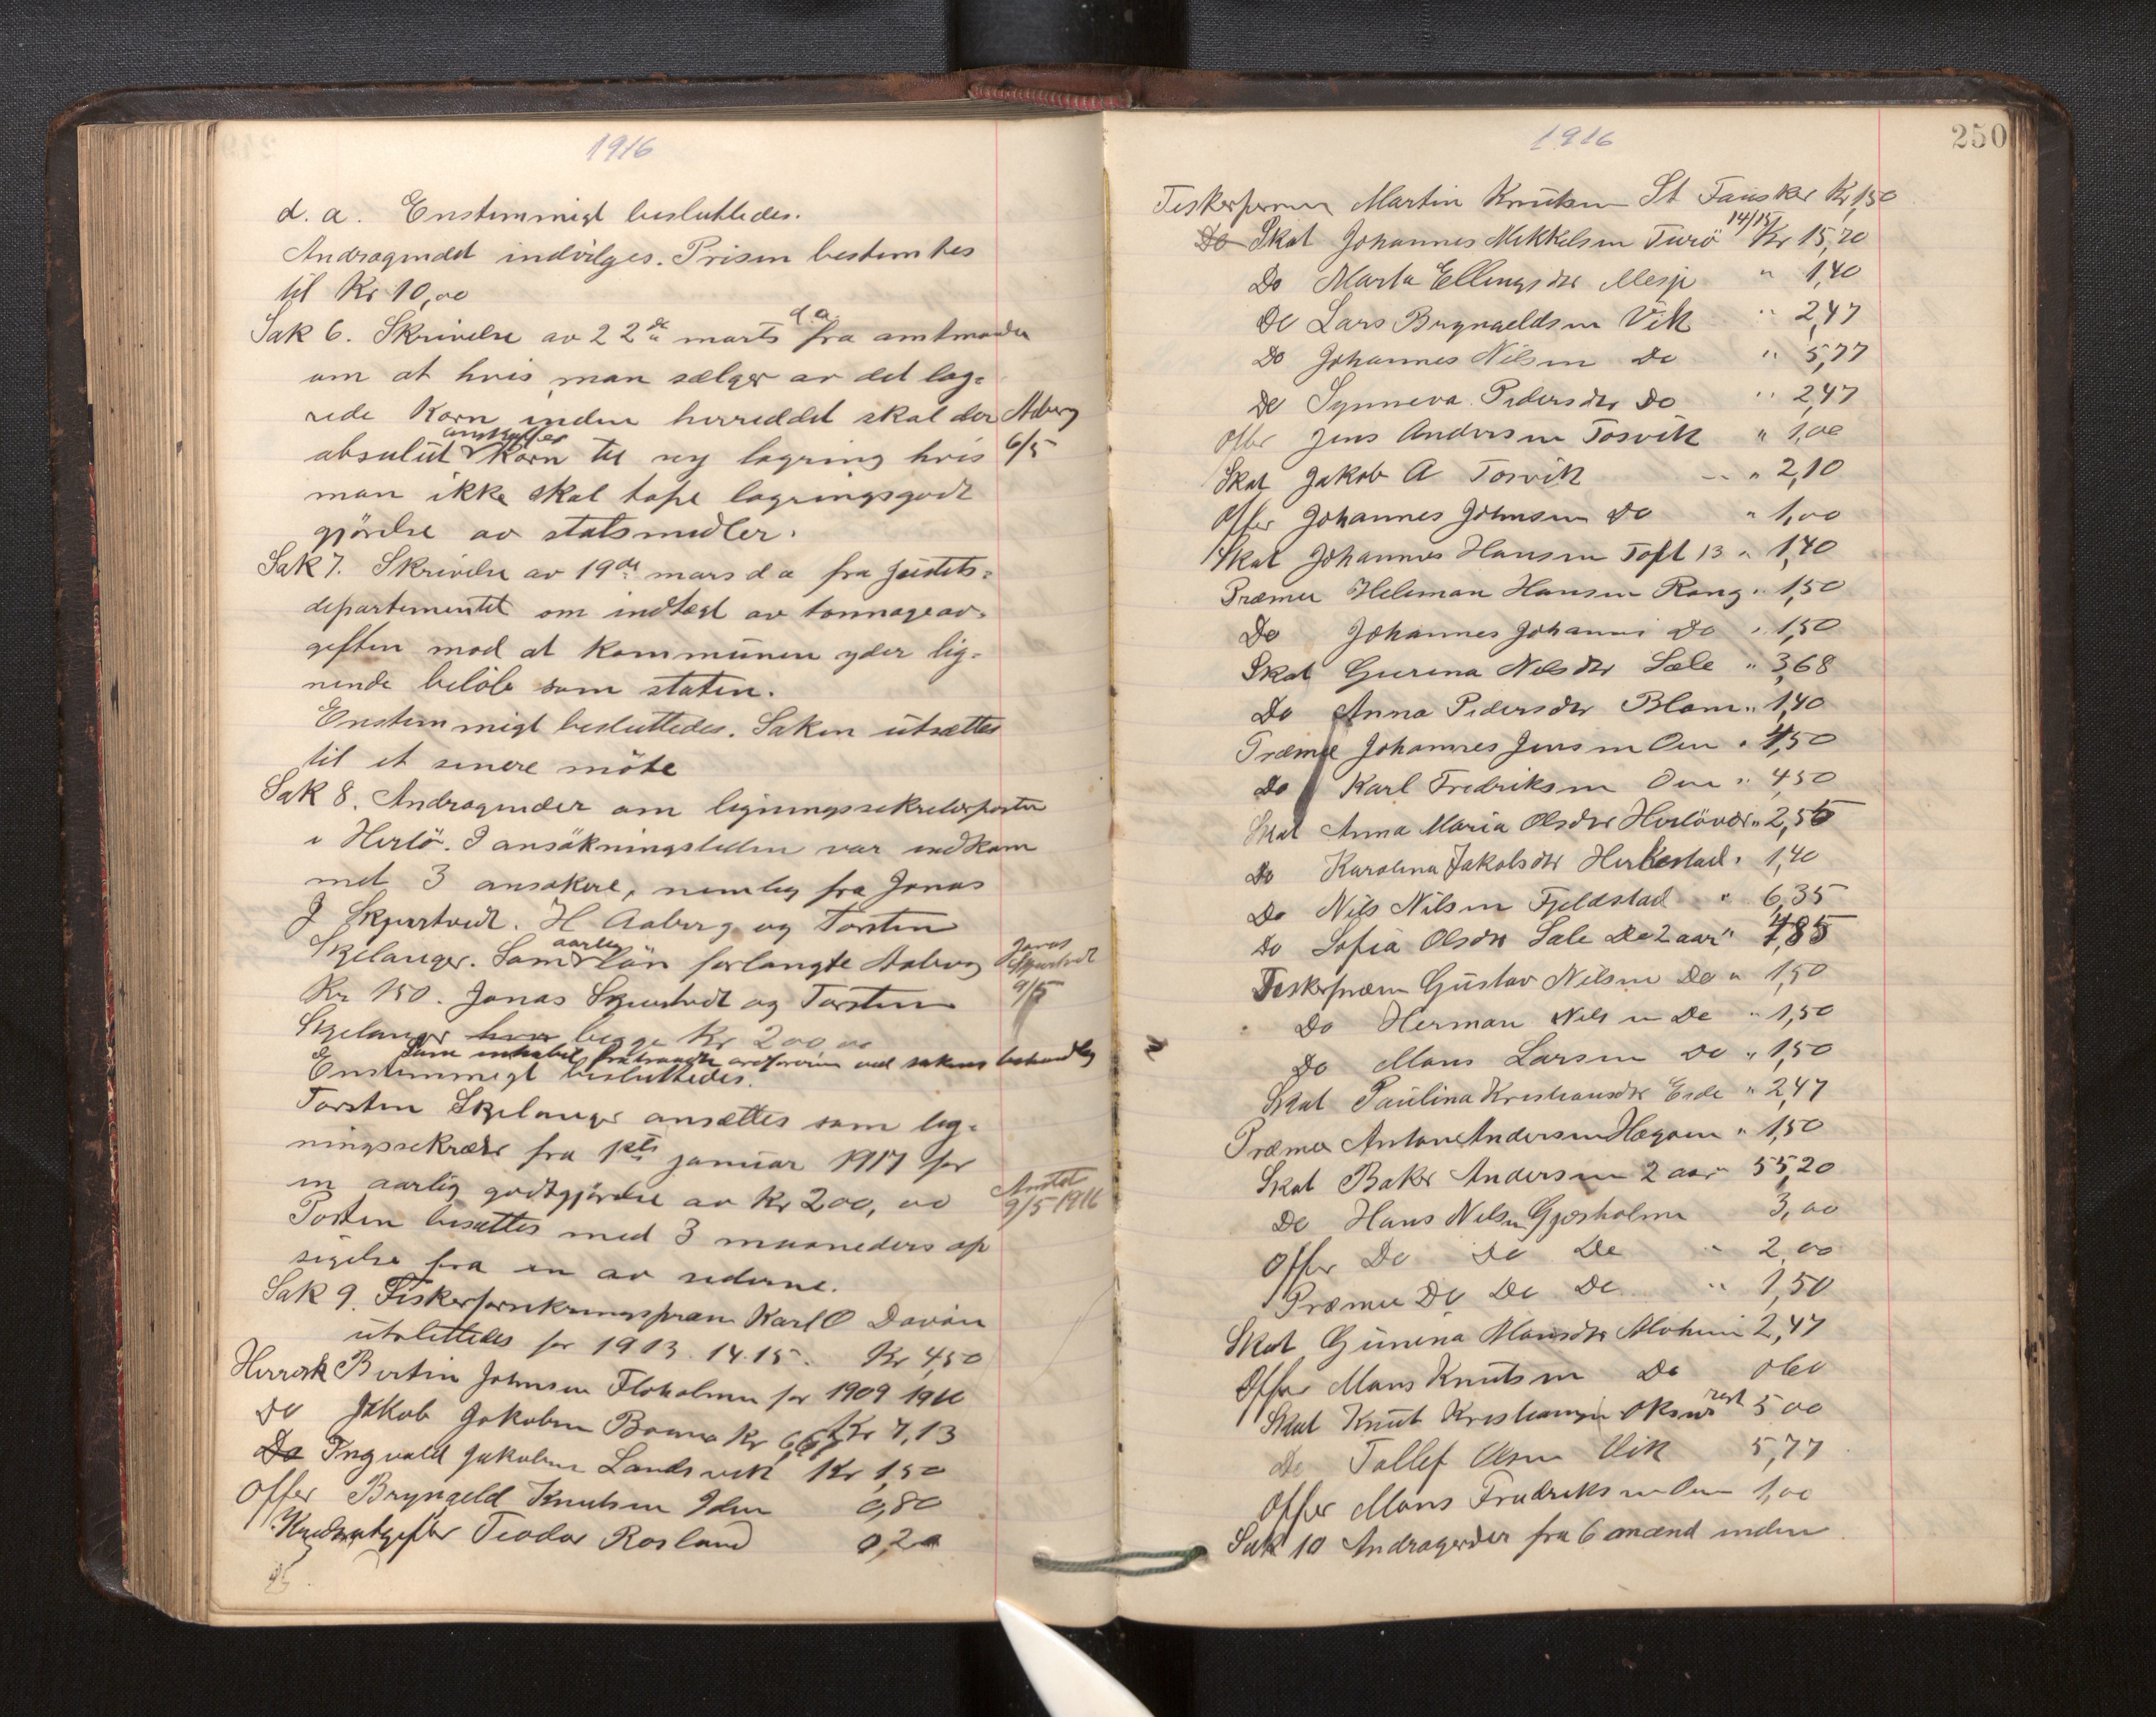 1916
d. a. Enstemmigt besluttedes.
Andragendet indvilges. Prisen bestemtes
til Kr 10,00
Sak 6. Skrivelse av 22de marts d.a. fra amtmanden
om at hvis man sælger av det lag-
rede Korn inden herreddet skal der
absolut anskaffes Korn til ny lagring hvis
Aaberg
6/5
man ikke skal tape lagringsgodt
gjörelse av statsmidler.
Sak 7. Skrivelse av 19de mars d a fra justits-
departementet om indtægt av tonnageav-
giften mod at kommunen yder lig-
nende belöb som staten.
Enstemmigt besluttedes. Saken utsættes
til et senere möte
Sak 8. Andragender om ligningssekretærposten
i Herlö. I ansökningstiden var indkom
met 3 ansökere, nemlig fra Jonas
J Skjurtvedt. H Aaberg og Torsten
Skjelanger. Som aarlig lön forlangte Aaberg
Kr 150. Jonas Skjurtvedt og Torsten
Jonas
Skjurtvedt
9/5
Skjelanger hver begge Kr 200 00
Som inhabil fratraadte ordföreren ved sakens behandling
Enstemmigt besluttedes.
Torsten Skjelanger ansættes som lig-
ningssekretær fra 1ste januar 1917 for
en aarlig godtgjörelse av Kr 200,00
Posten besættes med 3 maaneders op
Anstet
9/5 1916
sigelse fra en av siderne.
Sak 9. Fiskerforsikringspræm Karl O Davöen
utslettedes for 1913. 14. 15. Kr 4,50
Herredsk Bertin Johnsen Floholmen for 1909 1910
Do Jakob Jakobsen Kr 6,67 Kr 7,13
Do Ingvald Jakobsen Landsvik Kr 1,50
Offer Bryngeld Knutsen 0,80
Teodor Rosland 0,20
1916
250
Fiskerprem Martin Knutsen St Fausker Kr 1,50
Do Skat Johannes Mikkelsen Turö 14/15 Kr 15,20
Do Marta Ellingsdtr Mesje " 1,40
Do Lars Brynjeldsen Vik " 2,47
Do Johannes Nilsen Do " 5,77
Do Synneva Pedersdtr Do " 2,47
Offer Jens Andersen Tosvik " 1,00
Skat Jakob A Tosvik " 2,10
Offer Johannes Johnsen Do " 1,00
Skat Johannes Hansen Toft 13 " 1,40
Præmie Heleman Hansen Rong " 1,50
Do Johannes Johannes Do " 1,50
Skat Gurina Nilsdtr Sæle " 3,68
Do Anna Pedersdtr Blom " 1,40
Præmie Johannes Jensen Oen " 4,50
Do Karl Fredriksen Oen " 4,50
Skat Anna Maria Olsdtr Herlövær " 2,55
Do Karolina Jakobsdtr Herkestad " 1,40
Do Nils Nilsen Fjeldstad " 6,35
Do Sofia Olsdtr Sæle Do 2 aar " 4,85
Fiskerpræm Gustav Nilsen Do " 1,50
Do Herman Nilsen Do " 1,50
Do Mons Larsen Do " 1,50
Skat Paulina Kristiansdtr Eide " 2,47
Præmie Antone Andersen Hægøen " 1,50
Skat Baker Andersen 2 aar " 55,20
Do Hans Nilsen Gjøsholmen 3,00
Offer Do Do Do " 2,00
Præmie Do Do Do " 1,50
Skat Gurina Monsdtr 2,47
Offer Mons Knutsen Do 0 60
Skat Knut Kristiansen Oksnes rest 5 00
Do Tollef Olsen Vik 5,77
Offer Mons Fredriksen Oen 1,00
Sak 10 Andragender fra 6 mænd inden